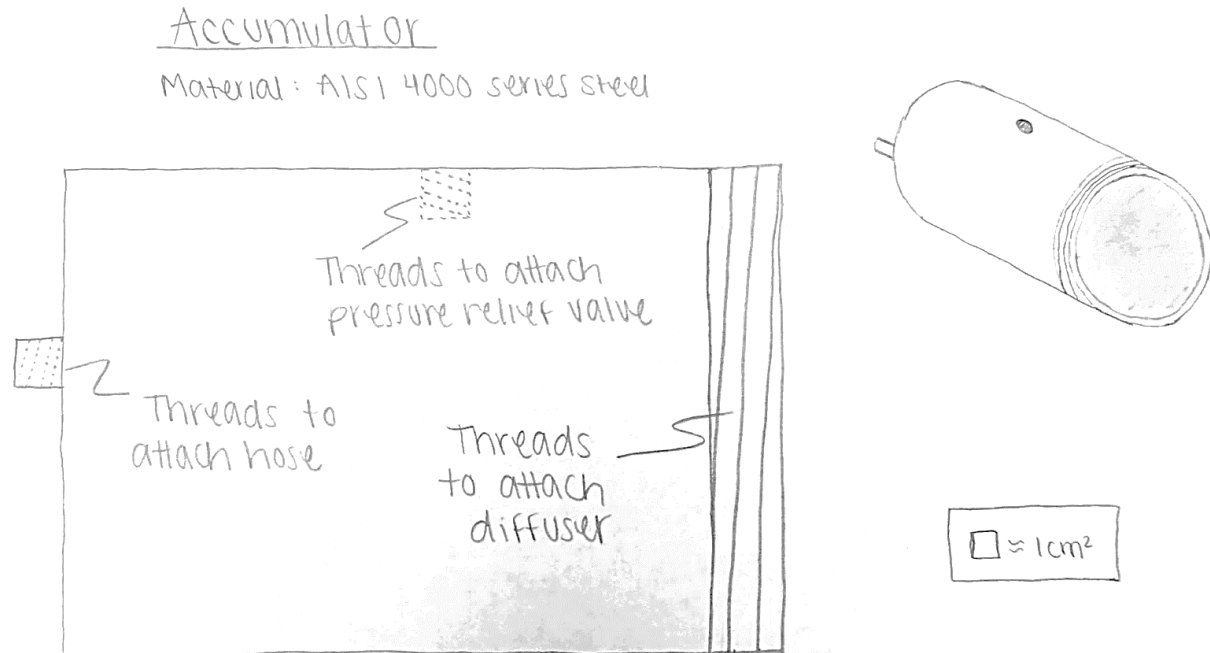 Accumulator
Material: AISI 4000 series steel
Threads to attach
pressure relief valve
Threads to
attach hose
Threads
to attach
diffuser
≈ 1cm²